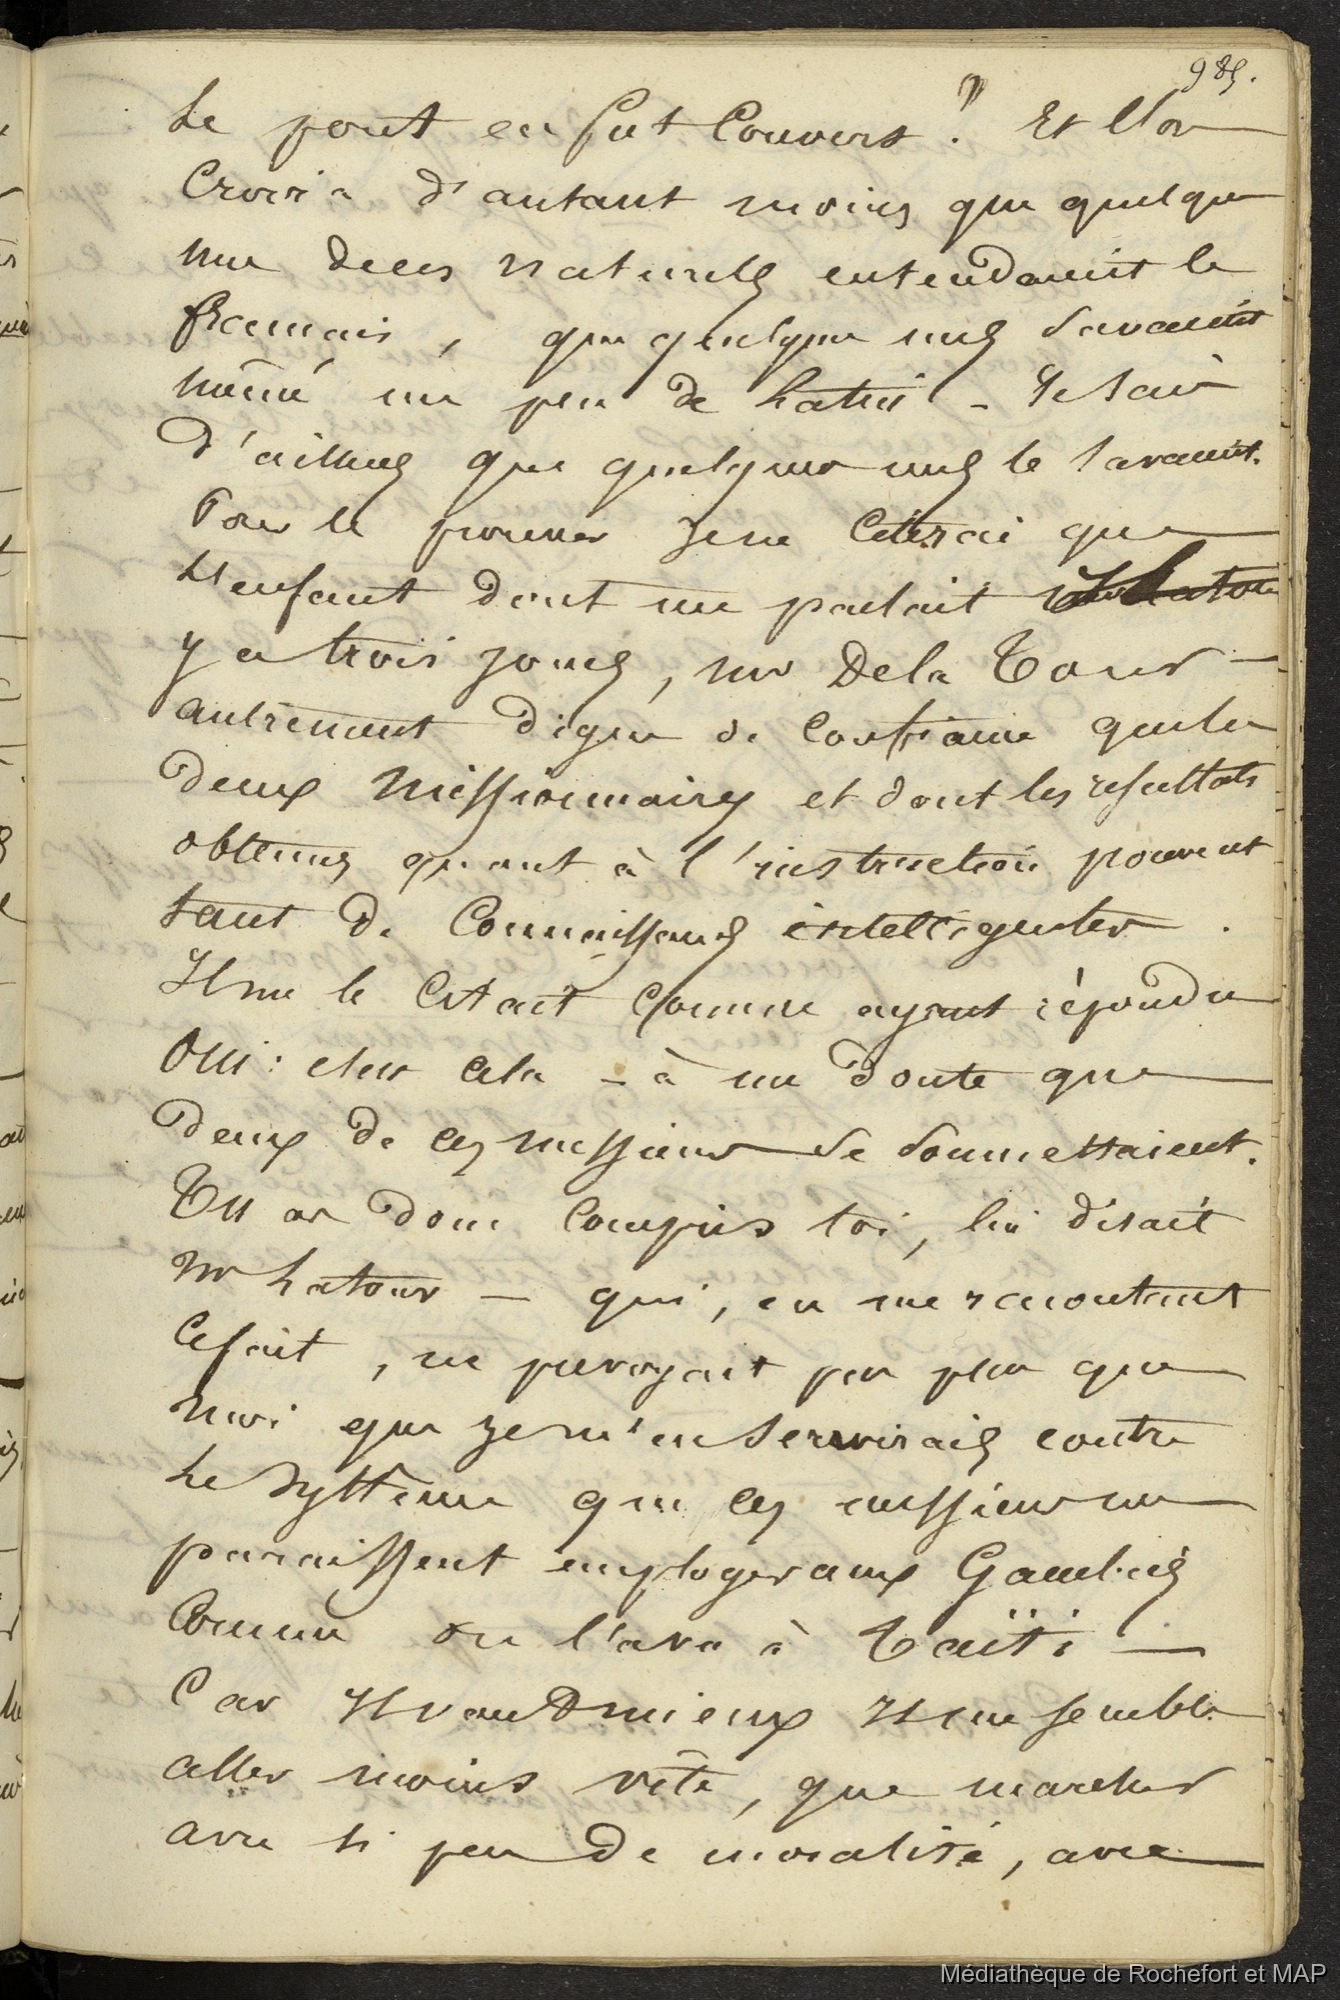 985.
Le pont en fut Couvert ? Et l'on
Croira d'autant moins que quelque
une de ces naturels entendaient le
francais, que quelque uns savaient
même un peu de Latin - Je sais
d'ailleurs que quelques uns le savaient.
Pour le prouver je ne Citerai que
L'enfant dont me parlait
y a trois jours, mr De la Tour -
autrement digne de Confiance que les
deux Missionnaires et dont les resultats
obtenus quant à l'instruction prouvent
tant de Connaissances intelligentes.
Il me le Citait Comme ayant répondu
Oui: cela - à un doute que
deux de ces messieurs se soumettaient.
Tu as donc Compris toi, lui disait
mr Latour - qui, en me racontant
Ce fait, ne prevoyait pas plus que
moi que je m'en servirais contre
Le Systême que ces messieurs me
paraissent employer aux Gambiés
Comme on l'a à Taïti -
Car Il vaud mieux Il me semble
aller moins vite, que marcher
avec si peu de moralité, avec
Médiathèque de Rochefort et MAP